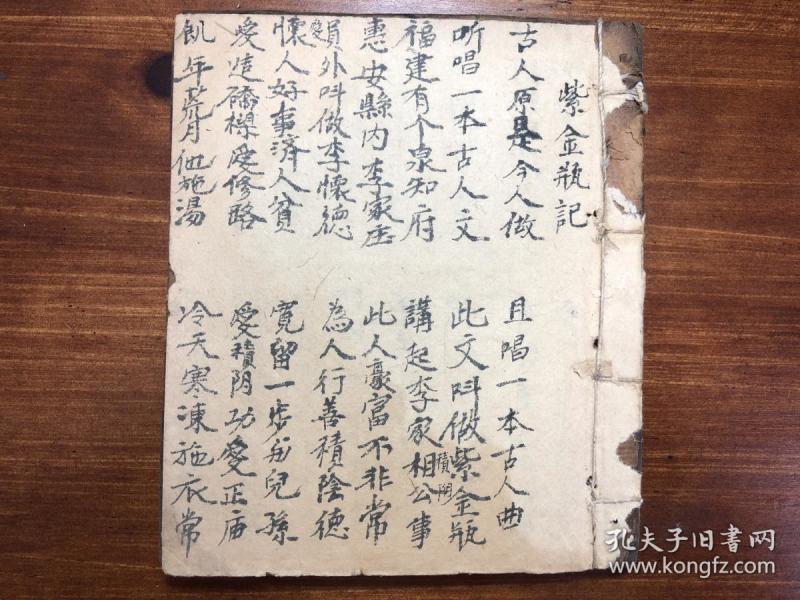 紫金瓶記
古人原是今人做
且唱一本古人曲
听唱一本古人文
此文呌做紫金瓶
福建有个泉知府
講起李家相公事
積陰
惠安縣内李家庄
此人豪富不非常
員外呌做李懷德
愛
為人行善積陰德
懷人好事済人貧
寛留一步与兒孫
愛造橋樑愛修路
愛積阴功愛正庙
飢年荒月他施湯
冷天寒凍施衣常
孔夫子旧书网
www.kongfz.com